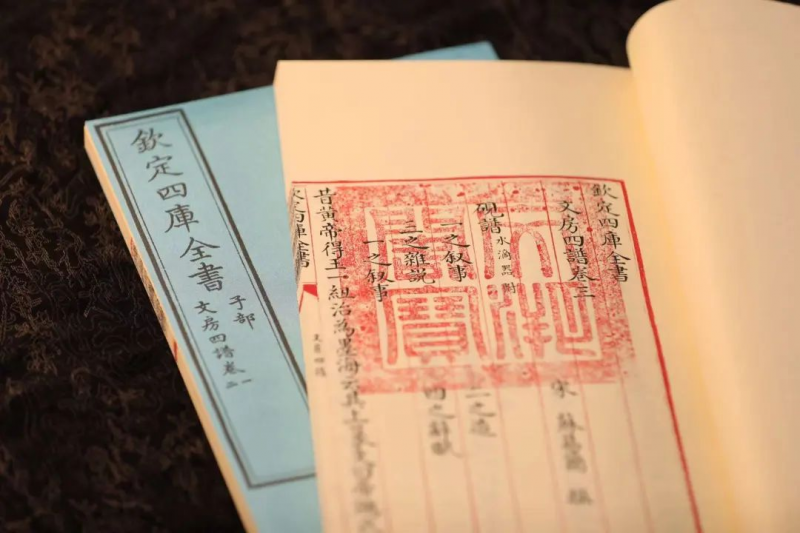 欽定四庫全書
子部
文房四譜卷一
二
欽定四庫全書
文房四譜卷三
宋 蘇易簡 撰
硯譜 水滴器附
一之叙事
二之造
三之雜說
四之辭賦
一之叙事
昔黄帝得玉一紐治為墨海云其上篆文
四庫全書
文房四譜
文淵閣寶